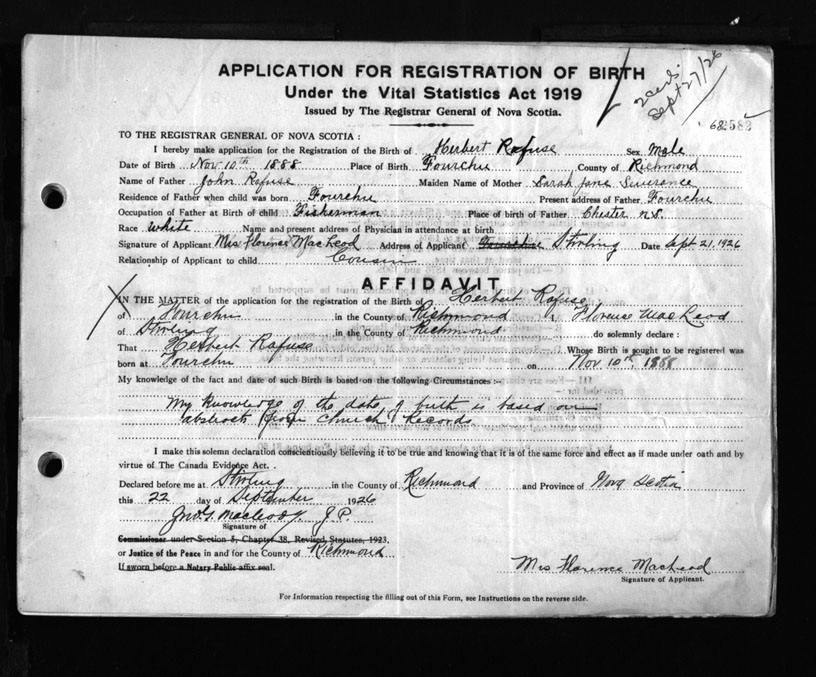 APPLICATION FOR REGISTRATION OF BIRTH
Under the Vital Statistics Act 1919
Issued by The Registrar General of Nova Scotia.
Sept 27/26
TO THE REGISTRAR GENERAL OF NOVA SCOTIA :
I hereby make application for the Registration of the Birth of Herbert Rafuse Sex Male
Date of Birth Nov 10th 1888 Place of Birth Fourchu County of Richmond
Name of Father John Rafuse Maiden Name of Mother Sarah Jane Severance
Residence of Father when child was born Fourchu Present address of Father Fourchu
Occupation of Father at Birth of child Fisherman Place of birth of Father Chester N.S.
Race White Name and present address of Physician in attendance at birth
Signature of Applicant Mrs Florence MacLeod Address of Applicant Stirling Date Sept 21, 1926
Relationship of Applicant to child Cousin
AFFIDAVIT
IN THE MATTER of the application for the registration of the Birth of Herbert Rafuse
of Fourchu in the County of Richmond I, Florence MacLeod
of Stirling in the County of Richmond do solemnly declare :
That Herbert Rafuse Whose Birth is sought to be registered was
born at Fourchu on Nov 10th, 1888
My knowledge of the fact and date of such Birth is based on the following Circumstances :-
My knowledge of the date of birth is based on
abstracts from Church Records
I make this solemn declaration conscientiously believing it to be true and knowing that it is of the same force and effect as if made under oath and by
virtue of The Canada Evidence Act.
Declared before me at Stirling in the County of Richmond and Province of Nova Scotia
this 22 day of September 1926
MacLeod J.P.
Signature of
Commissioner under Section 5, Chapter 38, Revised Statutes, 1923,
or Justice of the Peace in and for the County of Richmond
If sworn before a Notary Public affix seal.
Mrs Florence MacLeod
Signature of Applicant.
For Information respecting the filling out of this Form, see Instructions on the reverse side.